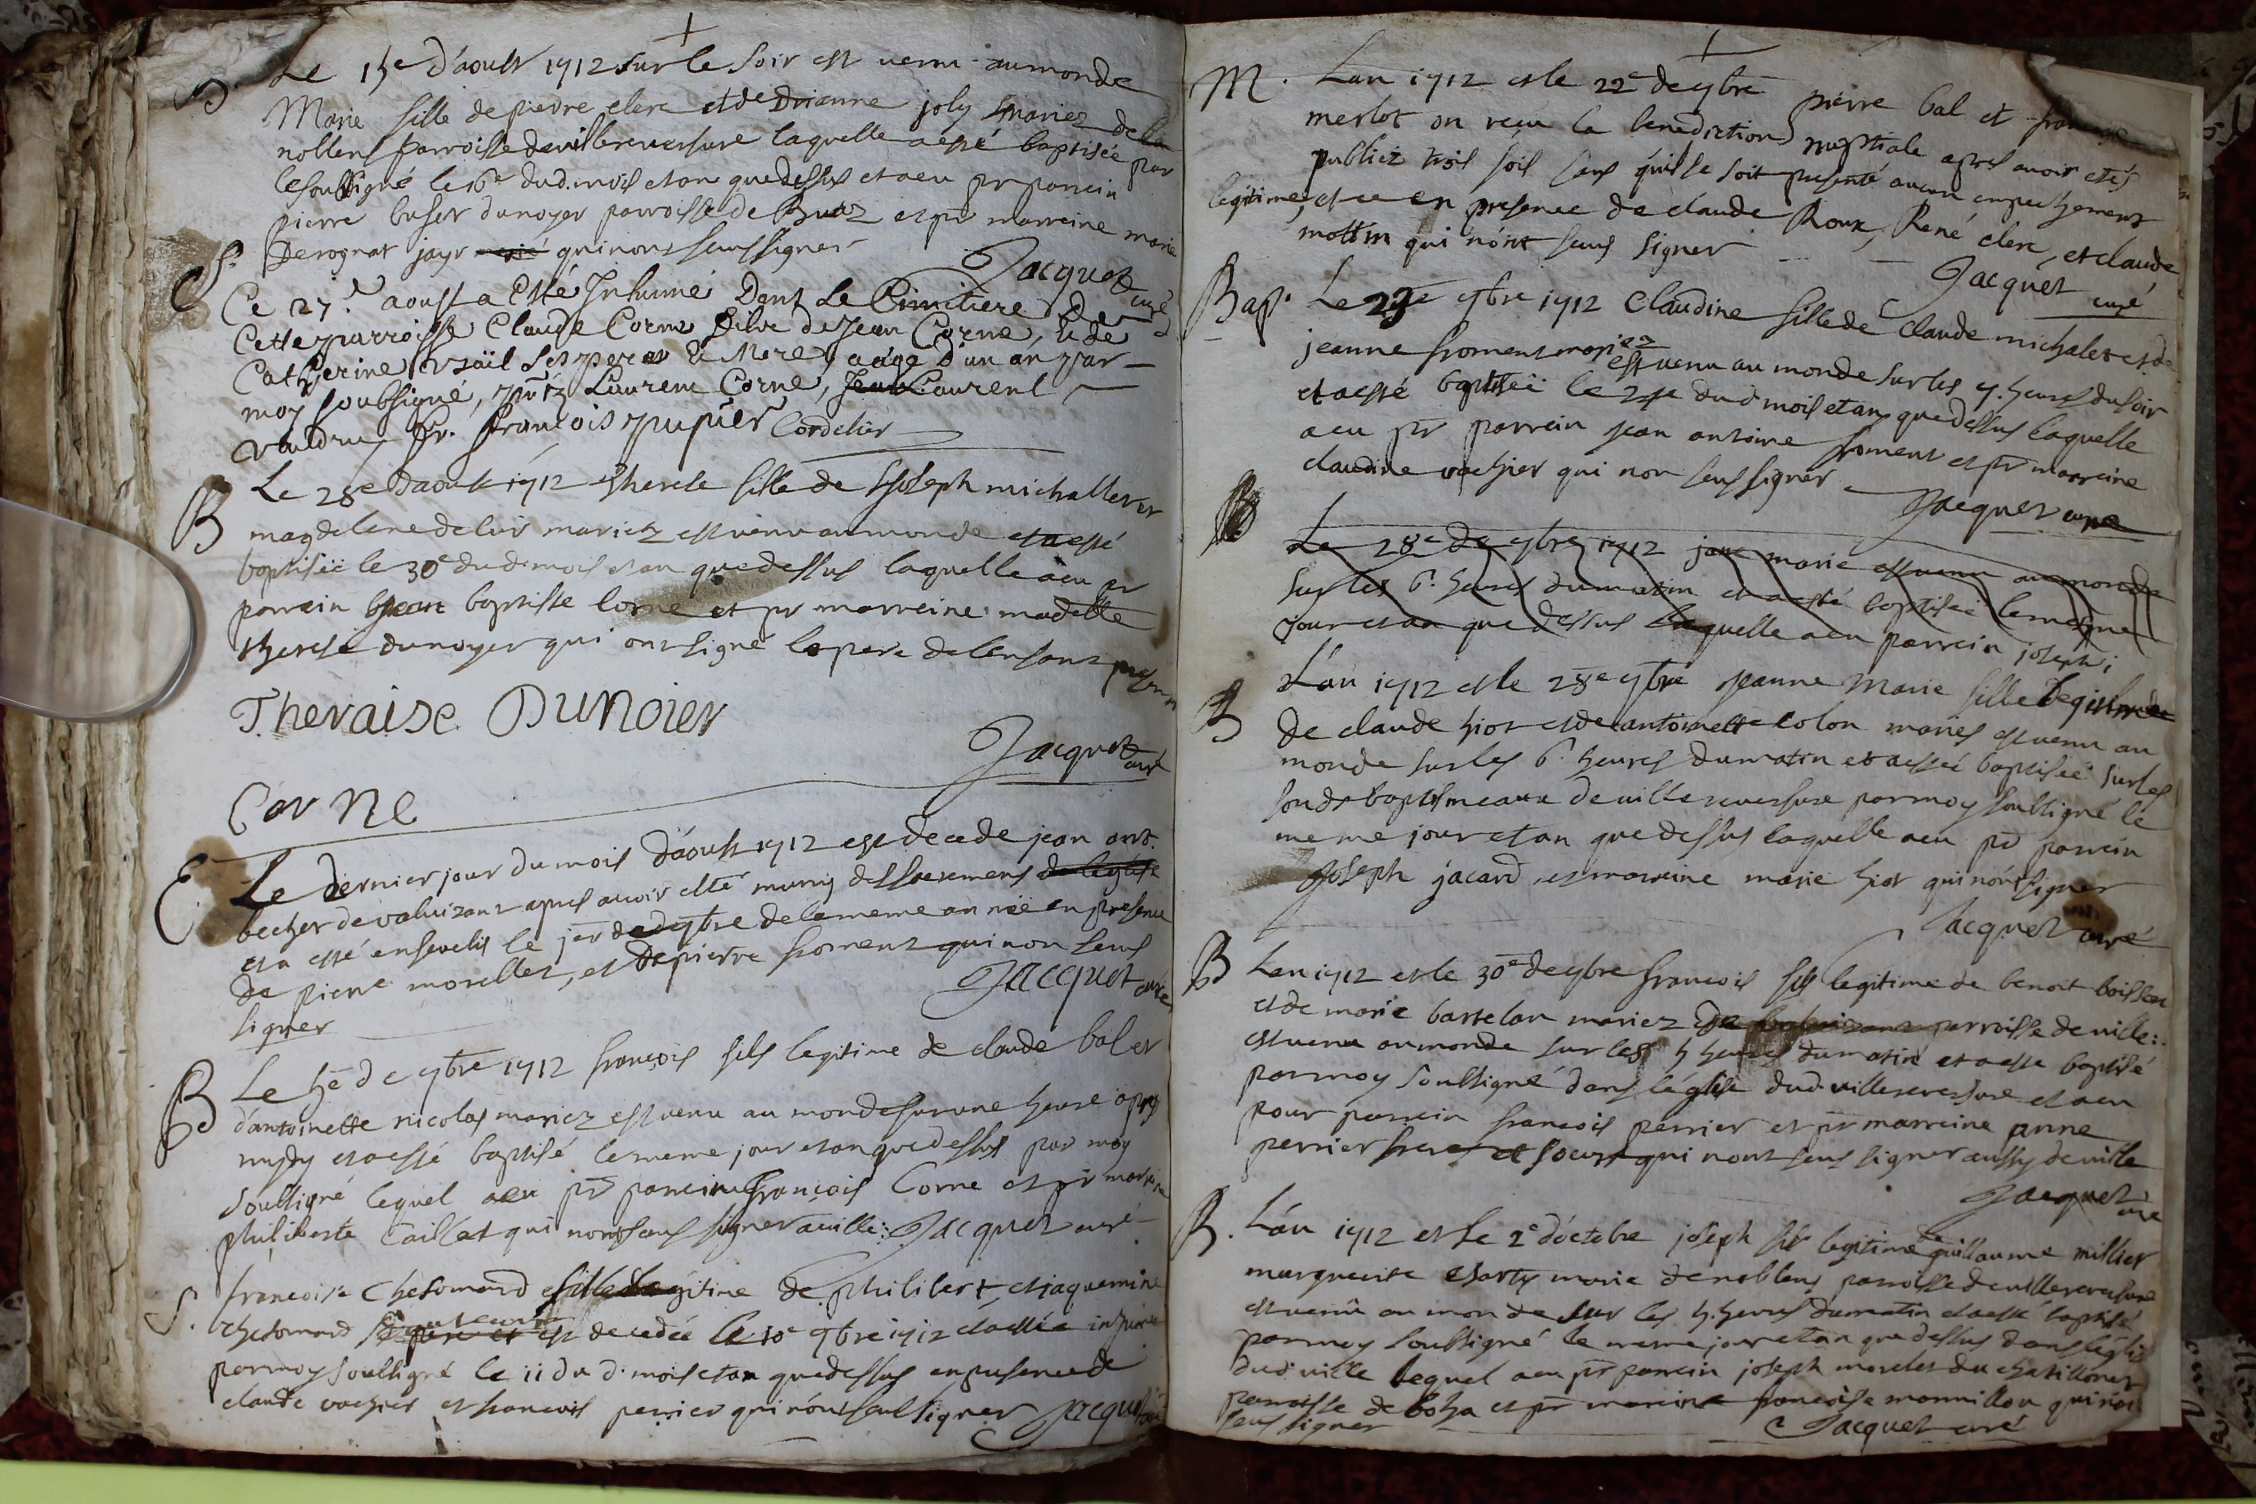 B. Le 15e d'aoust 1712 sur le soir est venu au monde
Marie fille de pierre clerc et de Drianne joly mariez de
nollens parroisse de villereversure laquelle a esté baptisée par
le soussigné le 16e dud. mois et an que dessus et a eu pr parrein
pierre buser du noyer parroisse de et pr marreine marie
Derognat jayr qui n'ont sceus signer
Jacquet curé
S. Ce 27e aoust a Esté Inhumé Dans Le Cimitiere De
Cette parroisse Claude Corne filve de Jean Corne, & de
Catherine vsäil Ses pere & Mere, aagé D'un an par
moy soubsigné, pntz Laurent Corne, Laurent
vauldruy fr. françois pupier Cordelier
B Le 28e d'aoust 1712 therese fille de Joseph michallet et
magdelene deluis mariez est venu au monde et a esté
baptisëe le 30e dud. mois et an que dessus laquelle a eu pr
parrein jean baptiste Corne et pr marreine madelle
therese dunoyer qui ont signé le pere de l'enfant present
Theraise Dunoier
Jacquet curé
Corne
E Le dernier jour du mois d'aoust 1712 est decede jean ant.
becher de valuizant apres avoir esté muny des sacremens de l'eglise
et a esté ensevelis le jer de 7bre de la meme année en presence
de pierre morellet, et de pierre froment qui n'on sceus
signer
Jacquet curé
B Le 5e de 7bre 1712 françois fils legitime de claude bal et
d'antoinette nicolas mariez est venu au monde sur une heure apres
mydy et a esté baptisé le meme jour et an que dessus par moy
soussigné lequel a eu pr parrein françois Corne et pr marreine
philiberte Caillat qui n'ont sceus signer a ville: Jacquet curé
S. françoise Chesomard fille legitime de philibert et jaquemine
chesomard est decedée le 10e 7bre 1712 et a estée inhumée
par moy soussigné le 11 du d. mois et an que dessus en presence de
claude vachier et françois perrier qui n'ont sceus signer Jacquet curé
M. L'an 1712 et le 22e de 7bre pierre bal et françoise
merlot on reçu la benediction nuptiale apres avoir estés
publiez trois fois sans qu'il se soit presenté aucun empechement
legitime, et ce en presence de claude Roux, René clerc, et claude
mottin qui n'ont sceus signer
Jacquet curé
Bap. Le 23e 7bre 1712 Claudine fille de Claude michalet et de
jeanne froment mariez est venu au monde sur les 7. heures du soir
et a esté baptisëe le 24e dud mois et an que dessus laquelle
a eu pr parrein jean antoine froment et pr marreine
claudine vachier qui non sceus signer
Jacquet curé
B Le 28e de 7bre 1712 jane marie est venu au monde
sur les 6. heures du matin et a esté baptisée le mesme
jour et an que dessus laquelle a eu parrein joseph
B L'an 1712 et le 28e 7bre jeanne Marie fille legitime
de claude hiot et de antoinette colon mariés est venu au
monde sur les 6. heures du matin et a estéé baptisée sur les
fonds baptismeaux de villereversure par moy soussigné le
meme jour et an que dessus laquelle a eu pr parrein
Joseph jacard et marreine marie hiot qui n'ont signer
Jacquet curé
B L'an 1712 et le 30e de 7bre francois fils legitime de benoit boisson
et de marie bartelan mariez parroisse de ville:
est venu au monde sur les 5 heures du matin et a este baptisé
par moy soussigné dans l'église dud. villereversure et a eu
pour parrein françois perrier et pr marreine anne
perrier frere et soeurs qui n'ont sceus signer aussy de ville
Jacquet curé
B. L'an 1712 et le 2e d'octobre joseph fils legitime de guillaume millier
marguerite charty marie de noblens parroisse de villereversure
est venû au monde sur les 5. heures du matin et a esté baptisé
par moy soussigné le meme jour et an que dessus dans l'église
dud. ville lequel a eu pr parrein joseph morelet du chatillonet
parroisse de boha et pr marreine françoise monnillon qui n'on
sceus signer Jacquet curé